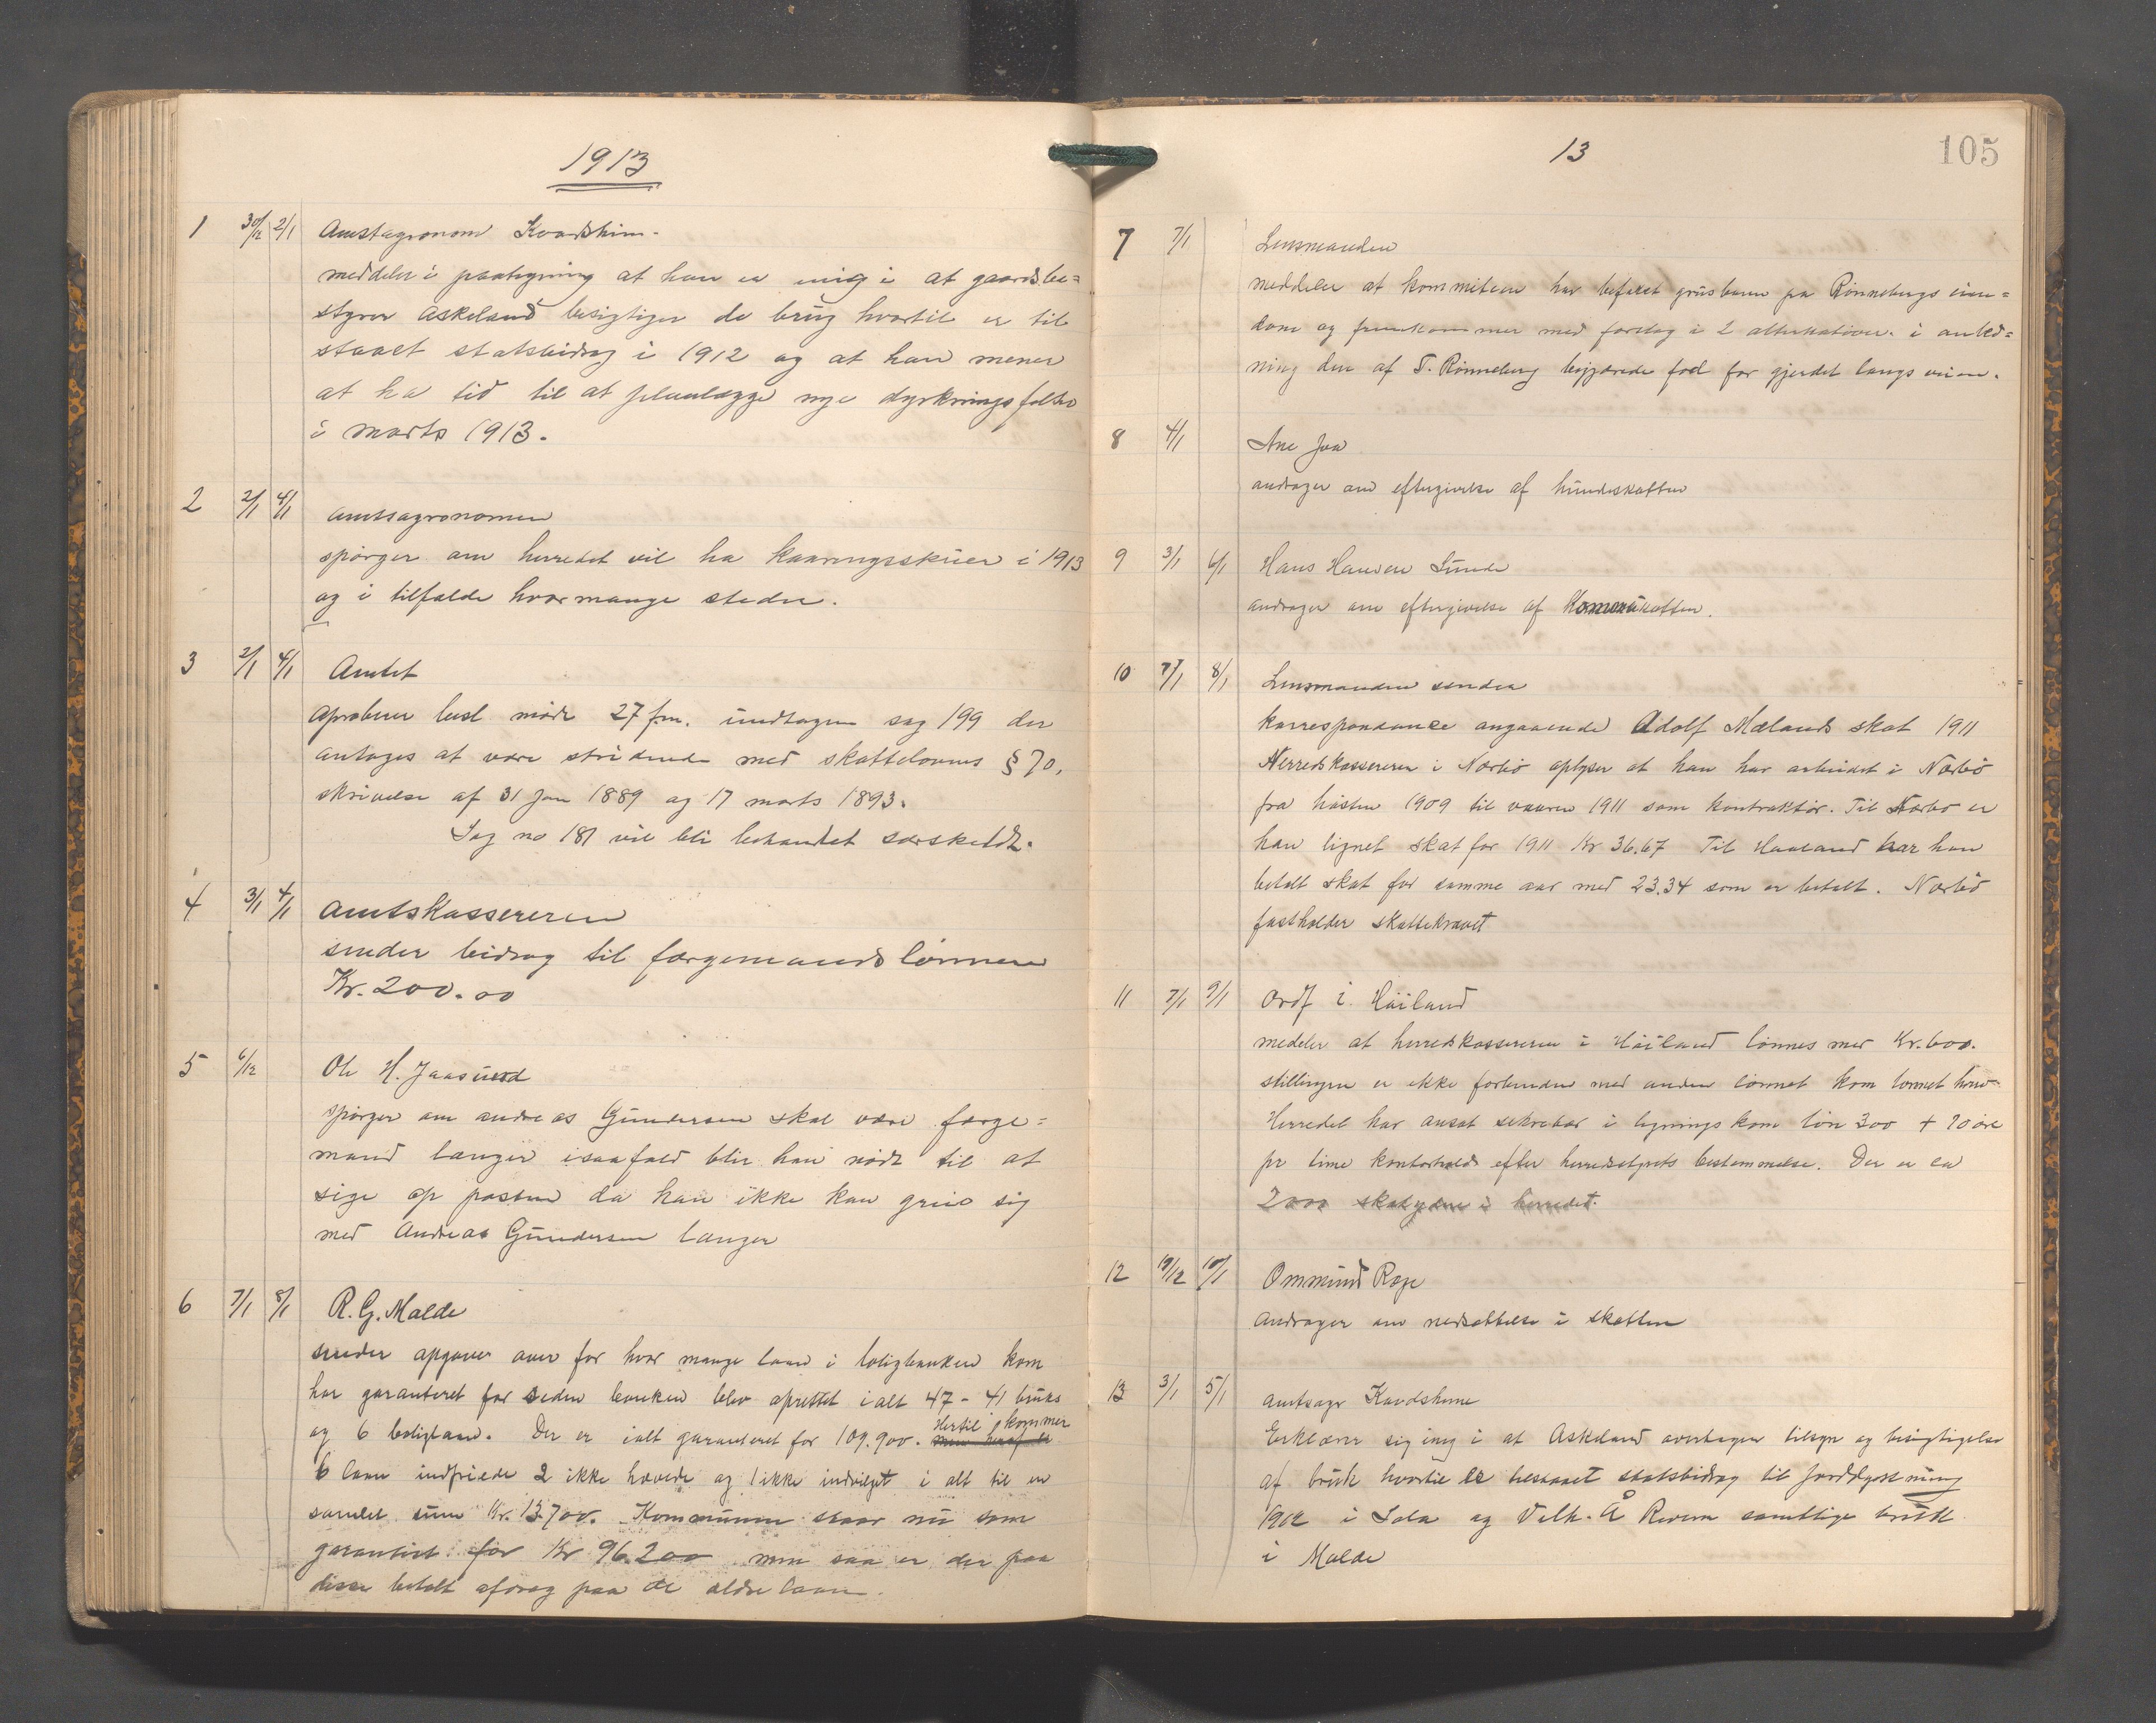 1913
1 30/12 2/1 Amtsagronom Kvadshim.
meddeler i paategning at han er enig i at gaardsbe=
styrer Askeland besigtiger de brug hvortil er til
staaet statsbidrag i 1912 og at han mener
at ha tid til at planlægge nye dyrkningsfelter
i marts 1913.
2 2/1 4/1 Amtsagronomen
spørger om herredet vil ha kaaringsskuer i 1913
og i tilfælde hvormange steder.
3 2/1 4/1 Amtet
aproberer besl møde 27 fm. undtagen sag 199 der
antages at være stridende med skattelovens § 70,
skrivelse af 31 jan 1889 og 17 marts 1893.
Sag no 181 vil bli behandlet særskildt.
4 3/1 4/1 Amtskassereren
sender bidrag til færgemandslønnen
Kr. 200.00
5 6/12 Ole H. Jaasund
spørger om Andreas Gundersen skal være færge=
mand længer isaafald blir han nødt til at
sige op posten da han ikke kan greie sig
med Andreas Gundersen længer
6 7/1 8/1 R. G. Malde
sender opgaver over for hvor mange laan i boligbanken kom
har garanteret for siden banken blev oprettet ialt 47 - 41 bruks
og 6 boliglaan. Der er ialt garanteret for 109.900. Hertil kommer
6 laan indfriede 2 ikke hævede og 1 ikke indvilget i alt til en
samlet sum Kr. 13.700. Kommunen staar nu som
garantist for Kr 96.200 men saa er der paa
disse betalt afdrag paa de ældre laan.
13
105
7 7/1 Lensmanden
meddeler at kommiteen har befaret grusbanen paa Rønnebergs eien=
dom og fremkommer med forslag i 2 alternativer i anled=
ning den af T. Rønneberg begjærede fod for gjerdet langs veien.
8 4/1 Ane Joa
andrager om eftergivelse af hundeskatten
9 3/1 6/1 Hans Hansen Sunde
andrager om eftergivelse af Komuneskatten.
10 7/1 8/1 Lensmanden sender
korrespondance angaaende Adolf Mælands skat 1911
Herredskassereren i Nærbø oplyser at han har arbeidet i Nærbø
fra høsten 1909 til vaaren 1911 som kontraktør. Til Nærbø er
han lignet skat for 1911 Kr 36.67 Til Haaland har han
betalt skat for samme aar med 23.34 som er betalt. Nærbø
fastholder skattekravet
11 7/1 9/1 Ordf i Høiland
medeler at herredskassereren i Høiland lønnes med Kr. 600.
stillingen er ikke forbunden med anden lønnet kom lønnet
Herredet har ansat sekretær i ligningskom løn 300 + 70 øre
pr time kontorhold efter herredstyrets bestemmelse. Der er ca
2000 skatydere i herredet.
12 19/12 10/1 Ommund Rege
andrager om nedsættelse i skatten
13 3/1 5/1 amtsagr Kvadsheim
Erklærer sig enig i at Askeland overtager tilsyn og besigtigelse
af bruk hvortil er tilstaaet statsbidrag til jorddyrkning
1912 i Sola og Å Revem samtlige bruk
i Malde